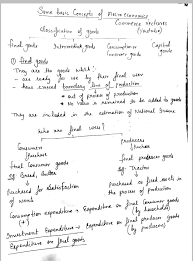 Some Basic Concepts of Macro Economics
Classification of goods
final goods Intermediate goods Consumption goods Capital goods
① final goods
They are the goods which:-
- are ready for use by their final user
- have crossed boundary line of production
• out of process of production
• No value is remained to be added to goods
They are included in the estimation of National Income
Who are final user?
Consumers Producers
final consumer goods final producer goods
Eg: Bread, butter Eg: Tractor
Purchased for satisfaction of wants
Purchased as final such in the process of production
Consumption expenditure = Expenditure on final consumer goods (by households)
(+)
Investment Expenditure = Expenditure on final producer goods (by producers)
Expenditure on final goods